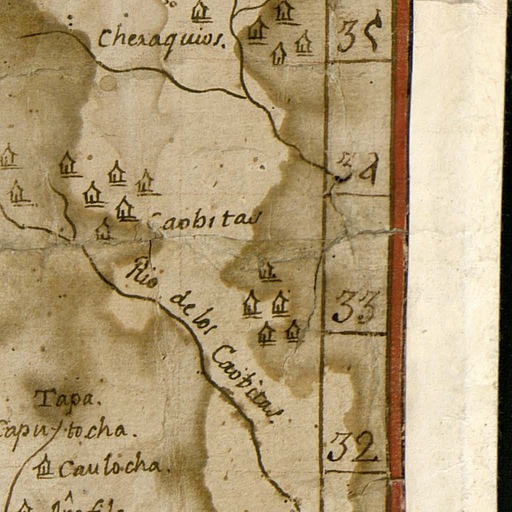 35
Cheraquios.
34
Caobitas
Rio de los Caobitas.
33
Tapa.
Capuytocha.
32
Caulocha.